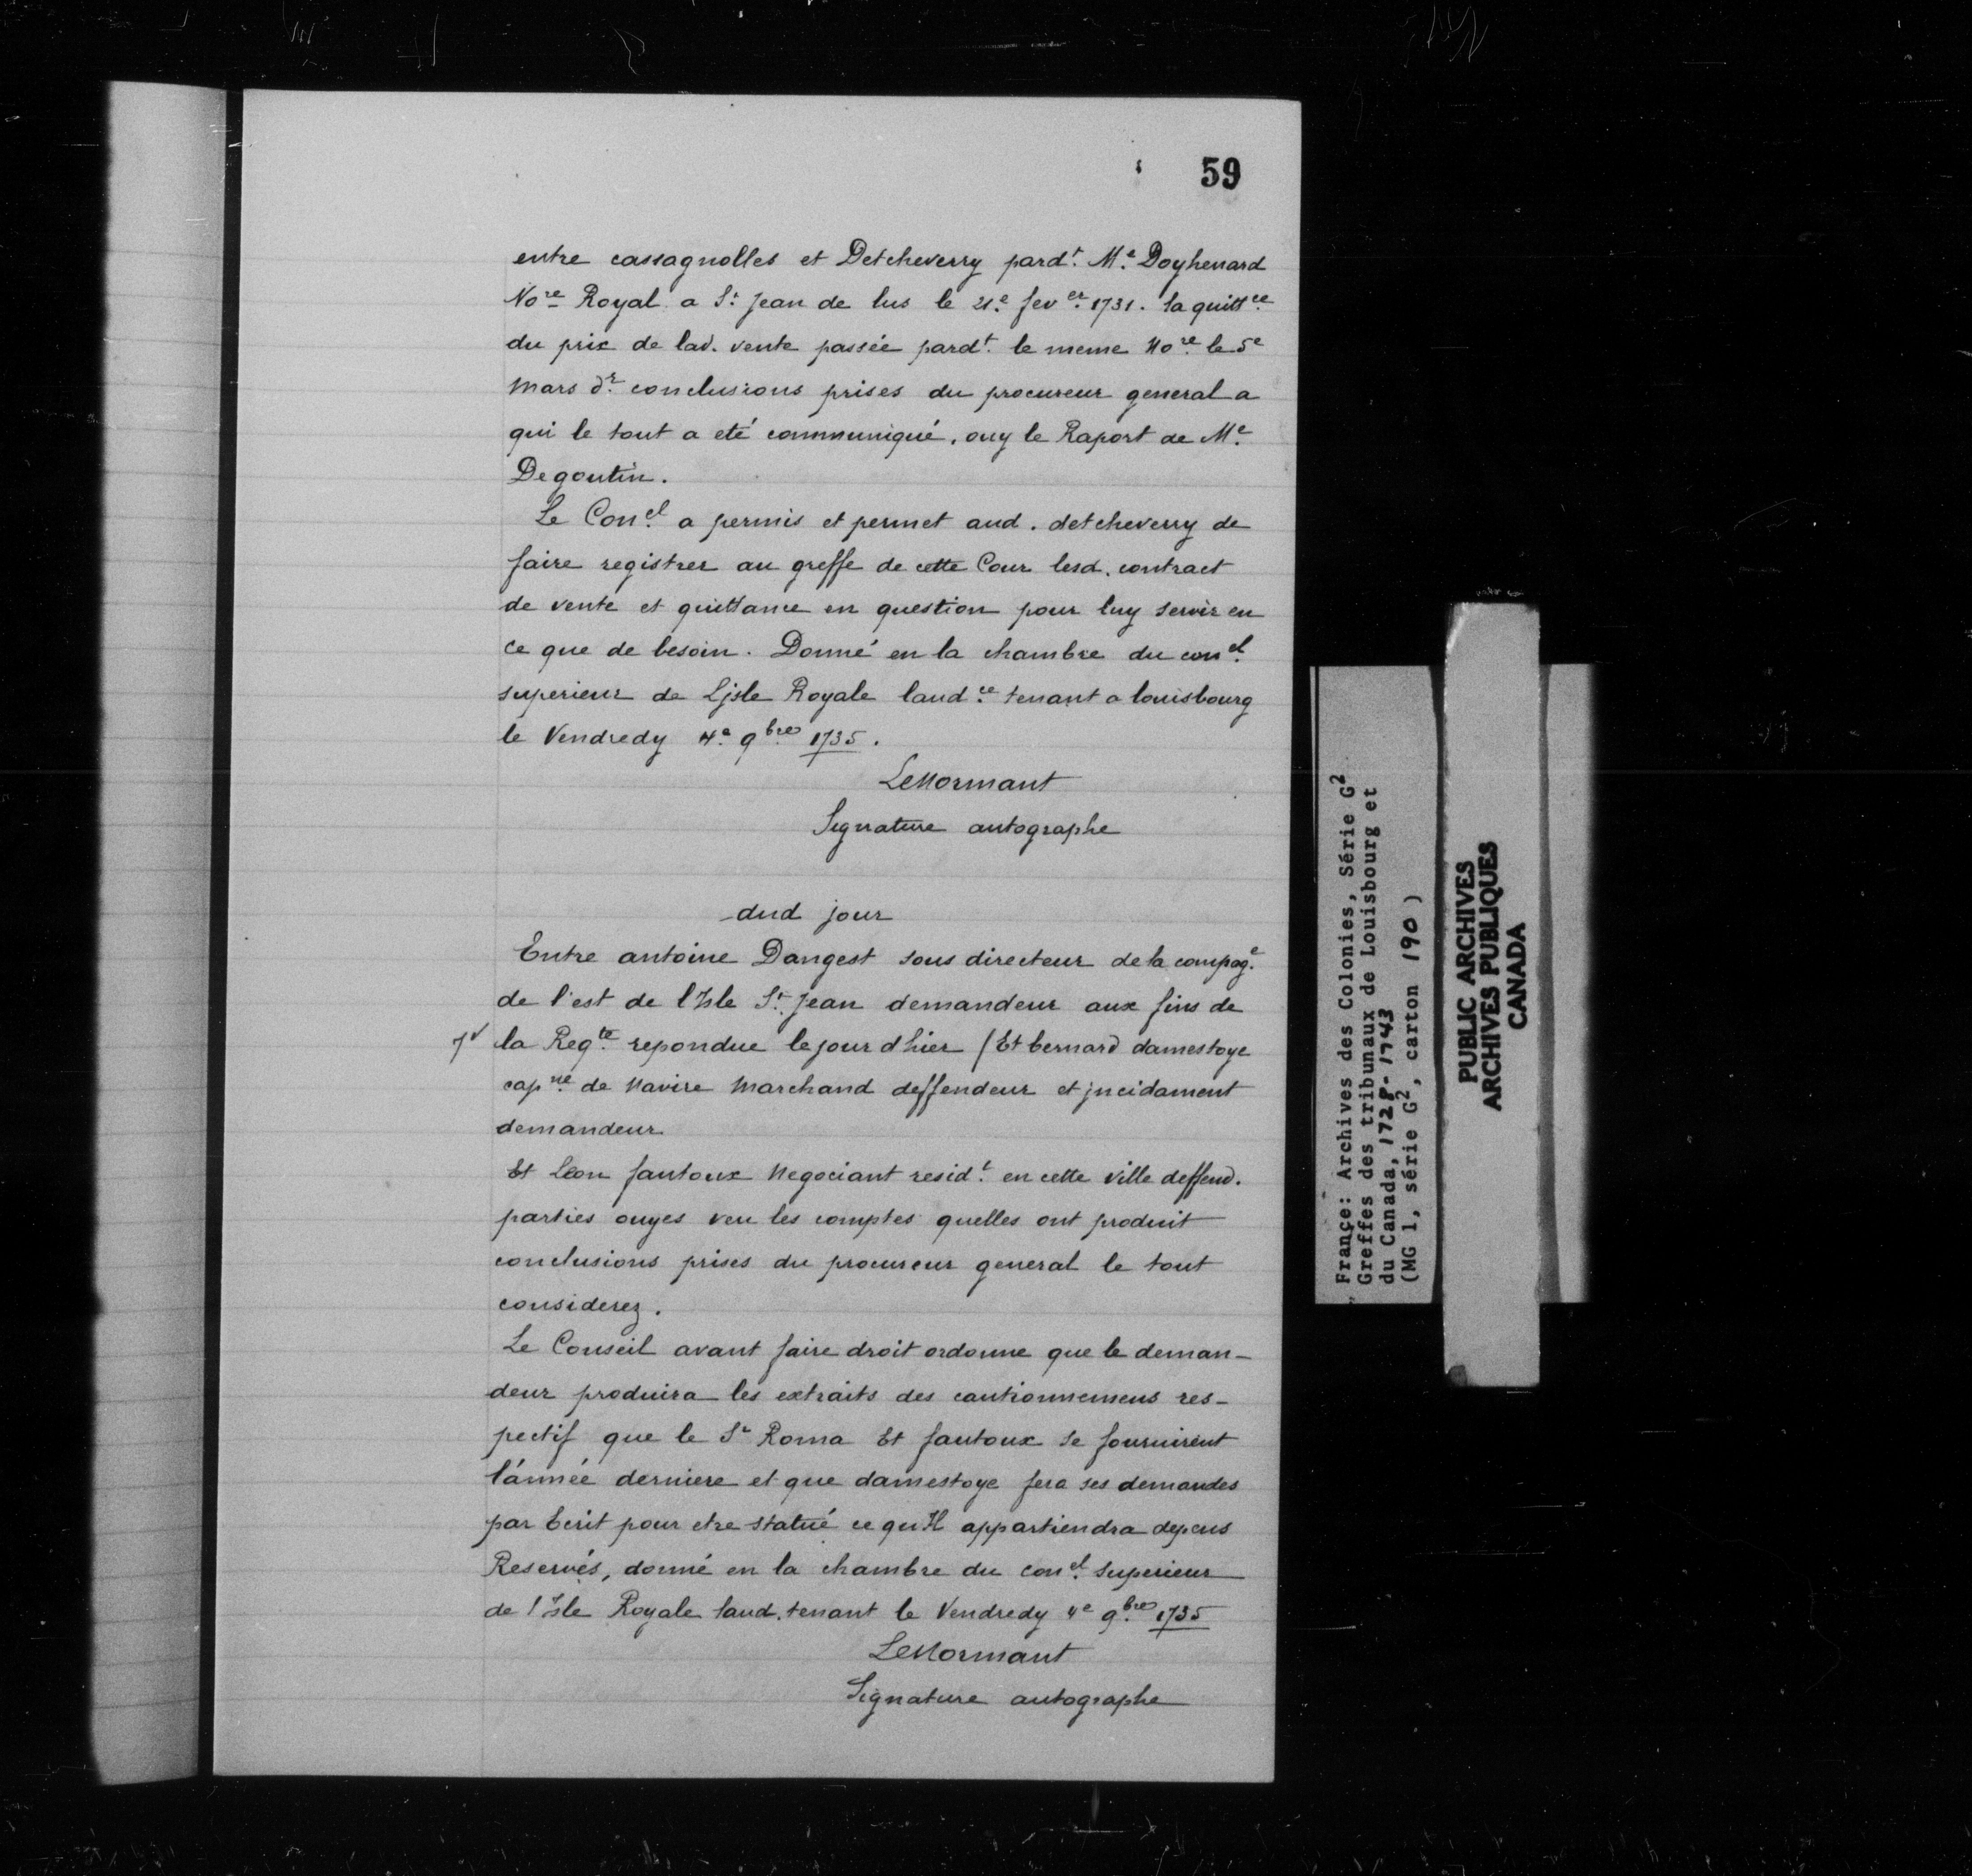 59
entre cassagnolles et Detcheverry pardt. Me. Doyhenard
Nore Royal a St. Jean de lus le 21e. fever. 1731. la quittce.
du prix de lad. vente passée pardt. le meme Nore. le 5e
mars dr. conclusions prises du procureur general a
qui le tout a eté communiqué, ouy le Raport de Me.
Degoutin.
Le Conel. a permis et permet aud. detcheverry de
faire registrer au greffe de cette Cour lesd. contract
de vente et quittance en question pour luy servir en
ce que de besoin. Donné en la chambre du conel.
superieur de Ljsle Royale laudce. tenant a louisbourg
le Vendredy 4e. 9bre. 1735.
LeNormant
Signature autographe
dud jour
Entre antoine Dangest sous directeur de la compage.
de l'est de l'Isle St. Jean demandeur aux fins de
la Reqte. repondue le jour dhier / Et bernard damestoye
capne. de Navire Marchand deffendeur et jncidament
demandeur
Et Leon fautoux Negociant residt. en cette Ville deffend.
parties ouyes veu les comptes quelles ont produit
conclusions prises du procureur general le tout
considerez.
Le Conseil avant faire droit ordonne que le deman-
deur produira les extraits des cautionnemens res-
pectif que le Sr Roma Et fautoux se fournirent
l'année derniere et que damestoye fera ses demandes
par Ecrit pour etre statué ce qu Il appartiendra depens
Reservés, donné en la chambre du conel. superieur
de l'Isle Royale laud. tenant le Vendredy 4e 9bre. 1735
LeNormant
Signature autographe
France: Archives des Colonies, Série G2
Greffes des tribunaux de Louisbourg et
du Canada, 1728-1743
(MG 1, série G2, carton 190)
PUBLIC ARCHIVES
ARCHIVES PUBLIQUES
CANADA